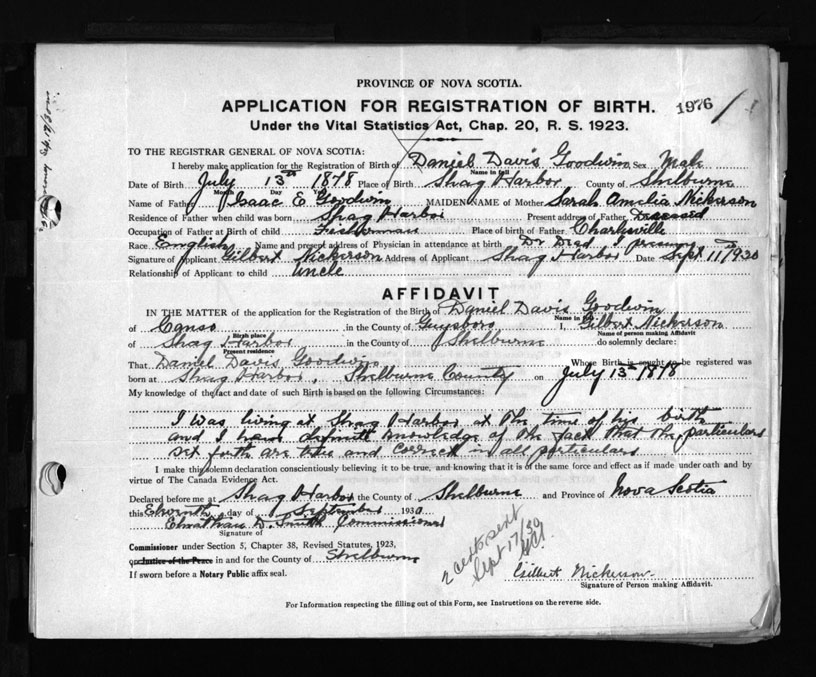 PROVINCE OF NOVA SCOTIA.
APPLICATION FOR REGISTRATION OF BIRTH. 1976 / 1
Under the Vital Statistics Act, Chap. 20, R. S. 1923.
TO THE REGISTRAR GENERAL OF NOVA SCOTIA:
I hereby make application for the Registration of Birth of Daniel Davis Goodwin Sex Male
Name in full
Date of Birth July 13th 1878 Place of Birth Shag Harbor County of Shelburne
Month Day
Name of Father Isaac E Goodwin MAIDEN NAME of Mother Sarah Amelia Nickerson
Residence of Father when child was born Shag Harbor Present address of Father Deceased
Occupation of Father at Birth of child Fisherman Place of birth of Father Charlesville
Race English Name and present address of Physician in attendance at birth Dr Dead I presume
Signature of Applicant Gilbert Nickerson Address of Applicant Shag Harbor Date Sept 11th 1930
Relationship of Applicant to child Uncle
AFFIDAVIT
IN THE MATTER of the application for the Registration of the Birth of Daniel Davis Goodwin
Name in full
of Canso in the County of Guysboro I, Gilbert Nickerson
Birth place Name of person making Affidavit
of Shag Harbor in the County of Shelburne do solemnly declare:
Present residence
That Daniel Davis Goodwin Whose Birth is sought to be registered was
born at Shag Harbor, Shelburne County on July 13th 1878
My knowledge of the fact and date of such Birth is based on the following Circumstances:
I was living at Shag Harbor at the time of his birth
and I have definite knowledge of the fact that the particulars
set forth are true and correct in all particulars
I make this solemn declaration conscientiously believing it to be true, and knowing that it is of the same force and effect as if made under oath and by
virtue of The Canada Evidence Act.
Declared before me at Shag Harbor the County of Shelburne and Province of Nova Scotia
this Eleventh day of September 1930
Elnathan D. Smith Commissioner
Signature of
Commissioner under Section 5, Chapter 38, Revised Statutes, 1923,
or Justice of the Peace in and for the County of Shelburne
If sworn before a Notary Public affix seal.
2 certs. sent
Sept 17/30
Gilbert Nickerson.
Signature of Person making Affidavit.
For Information respecting the filling out of this Form, see Instructions on the reverse side.